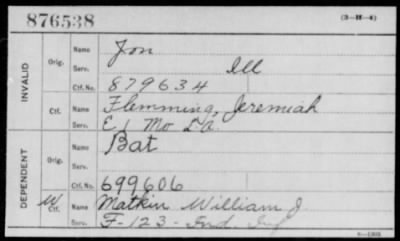 876538
(3-H-4)
INVALID
Orig.
Name Jon
Serv. Ill
Ctf. No. 879634
Ctf.
Name Flemming, Jeremiah
Serv. E 1 Mo L.A.
DEPENDENT
Orig.
Name Bat
Serv.
Ctf. No. 699606
W Ctf.
Name Matkin William J
Serv. F-123-Ind. Inf